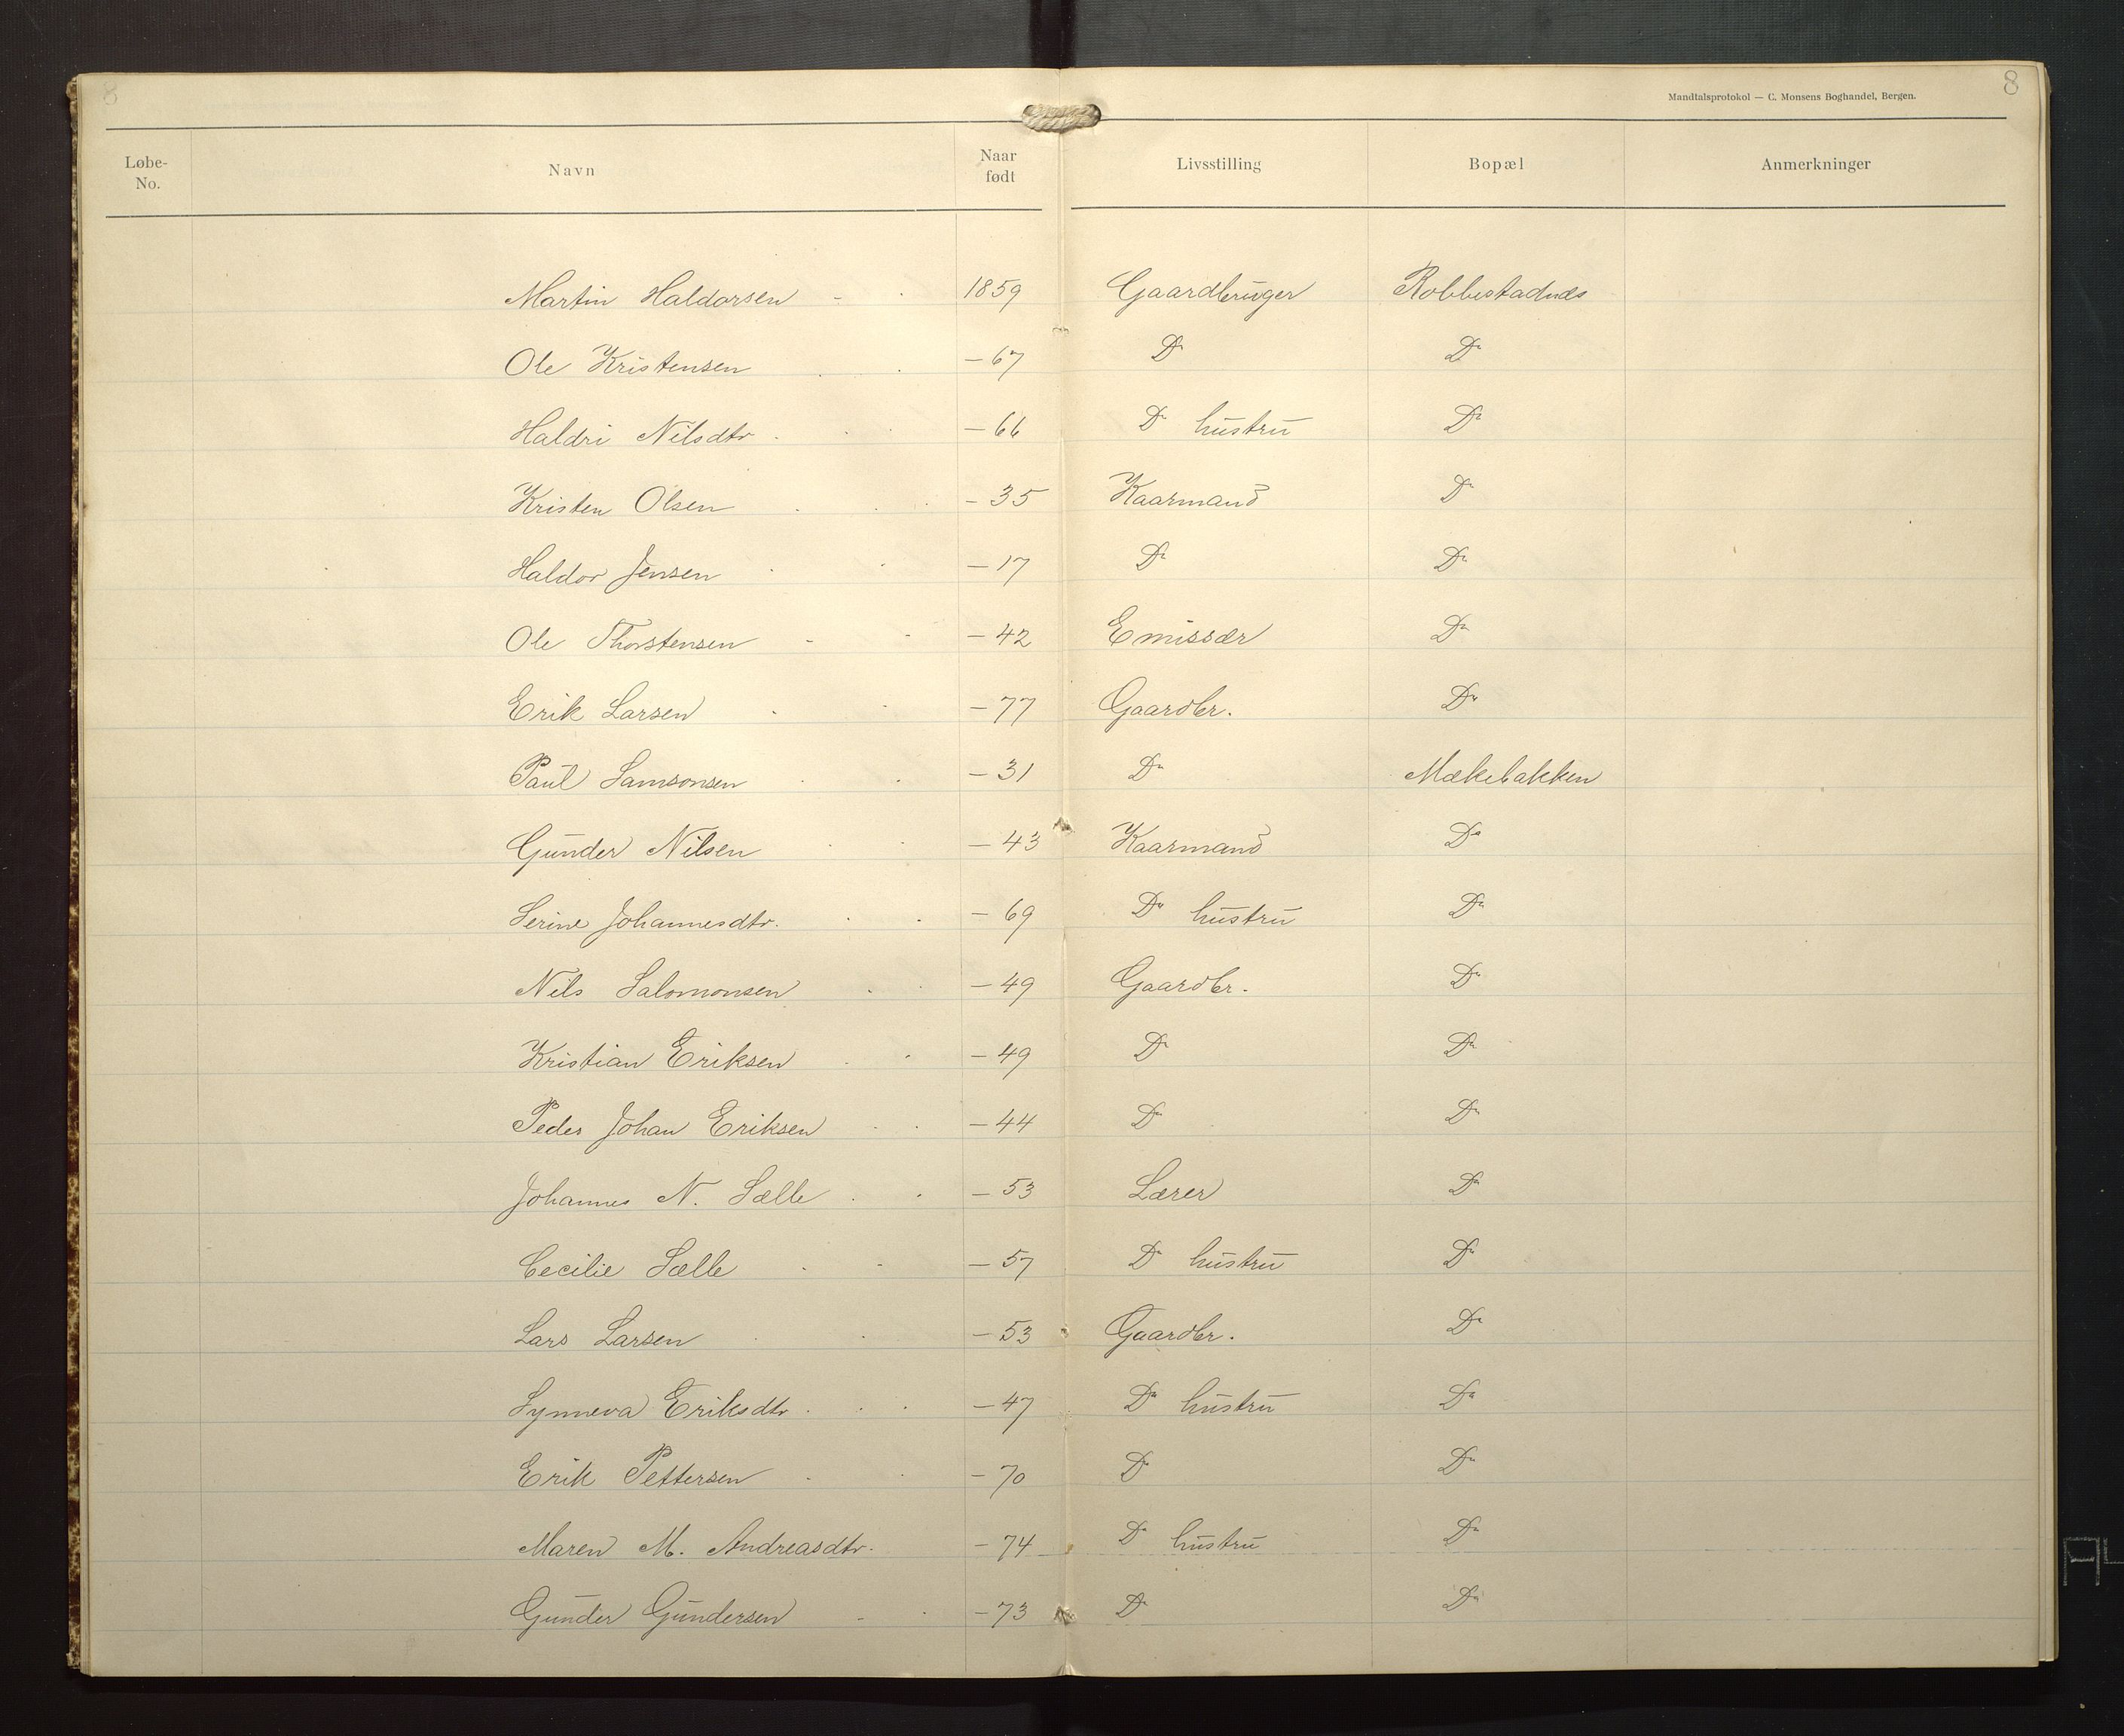 8
Mandtalsprotokol — C. Monsens Boghandel, Bergen.
8
Løbe-No. Navn Naar født Livsstilling Bopæl Anmerkninger
Martin Haldorsen - 1859 Gaardbruger Robbestadnæs
Ole Kristensen — 67 Do Do
Haldri Nilsdtr — 66 Do hustru Do
Kristen Olsen — 35 Kaarmand Do
Haldor Jensen — 17 Do Do
Ole Thorstensen — 42 Emissær Do
Erik Larsen — 77 Gaardbr. Do
Paul Samsonsen — 31 Do Mækebakken
Gunder Nilsen — 43 Kaarmand Do
Serine Johannesdtr. — 69 Do hustru Do
Nils Salomonsen — 49 Gaardbr. Do
Kristian Eriksen — 49 Do Do
Peder Johan Eriksen — 44 Do Do
Johannes N. Sælle — 53 Lærer Do
Cecilie Sælle — 57 Do hustru Do
Lars Larsen — 53 Gaardbr. Do
Synneva Eriksdtr. — 47 Do hustru Do
Erik Pettersen — 70 Do Do
Maren M. Andreasdtr. — 74 Do hustru Do
Gunder Gundersen — 73 Do Do